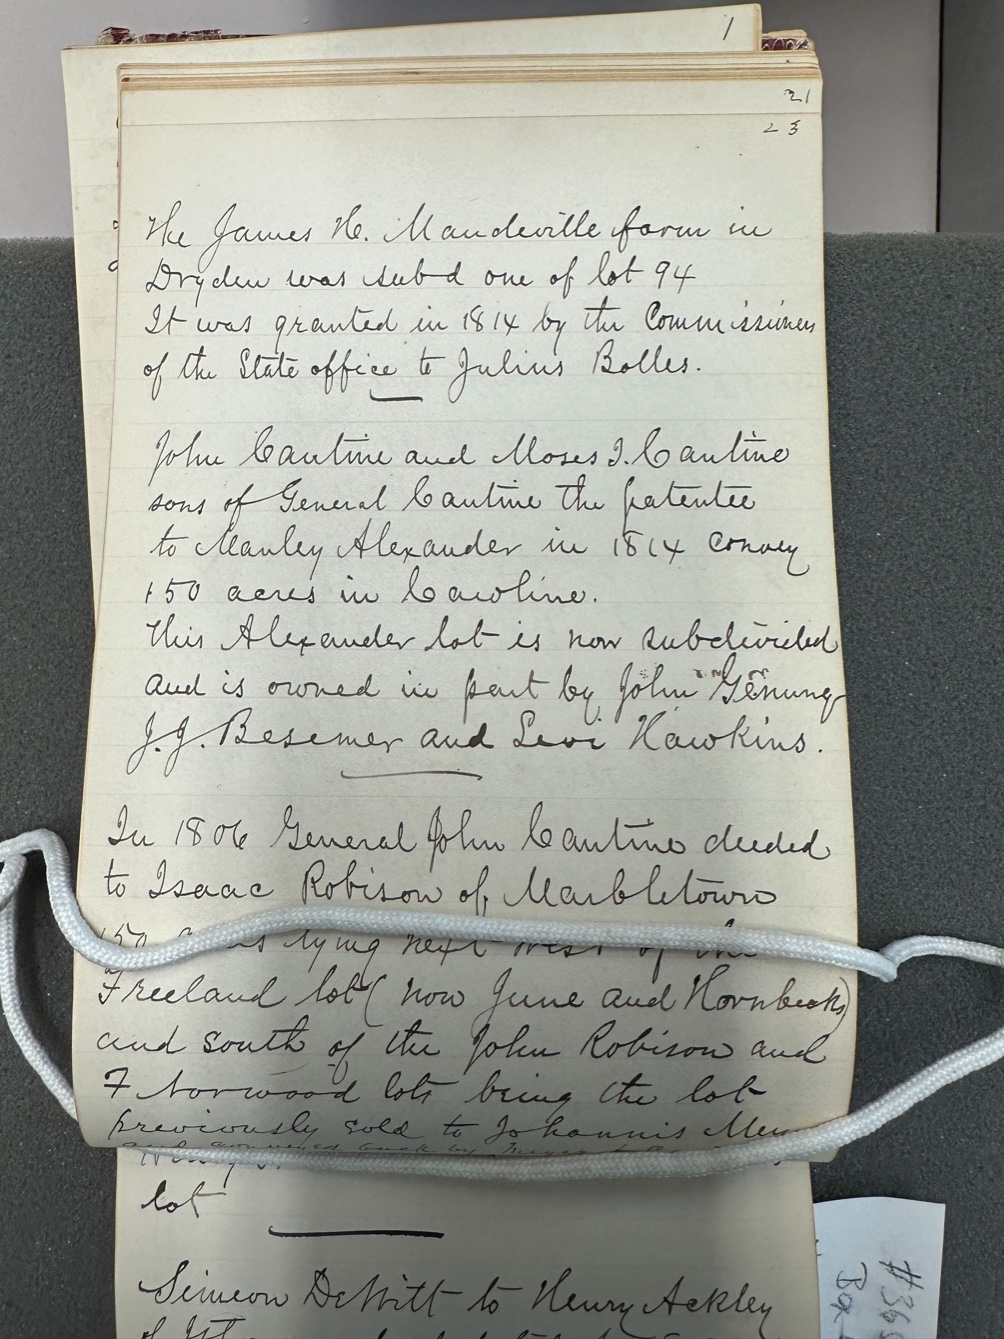 1
21
23
The James H. Mandeville farm in
Dryden was subd one of lot 94
It was granted in 1814 by the Commissioners
of the State office to Julius Bolles.
John Cantine and Moses I. Cantine
sons of General Cantine the patentee
to Manley Alexander in 1814 convey
150 acres in Caroline.
This Alexander lot is now subdivided
and is owned in part by John Genung
J. J. Besemer and Levi Hawkins.
In 1806 General John Cantine deeded
to Isaac Robison of Marbletown
150 acres lying next west of the
Freeland lot (now June and Hornbecks)
and south of the John Robison and
F Norwood lots being the lot
previously sold to Johannis
and conveyed back by
lot
Simeon DeWitt to Henry Ackley
of
#36
Box